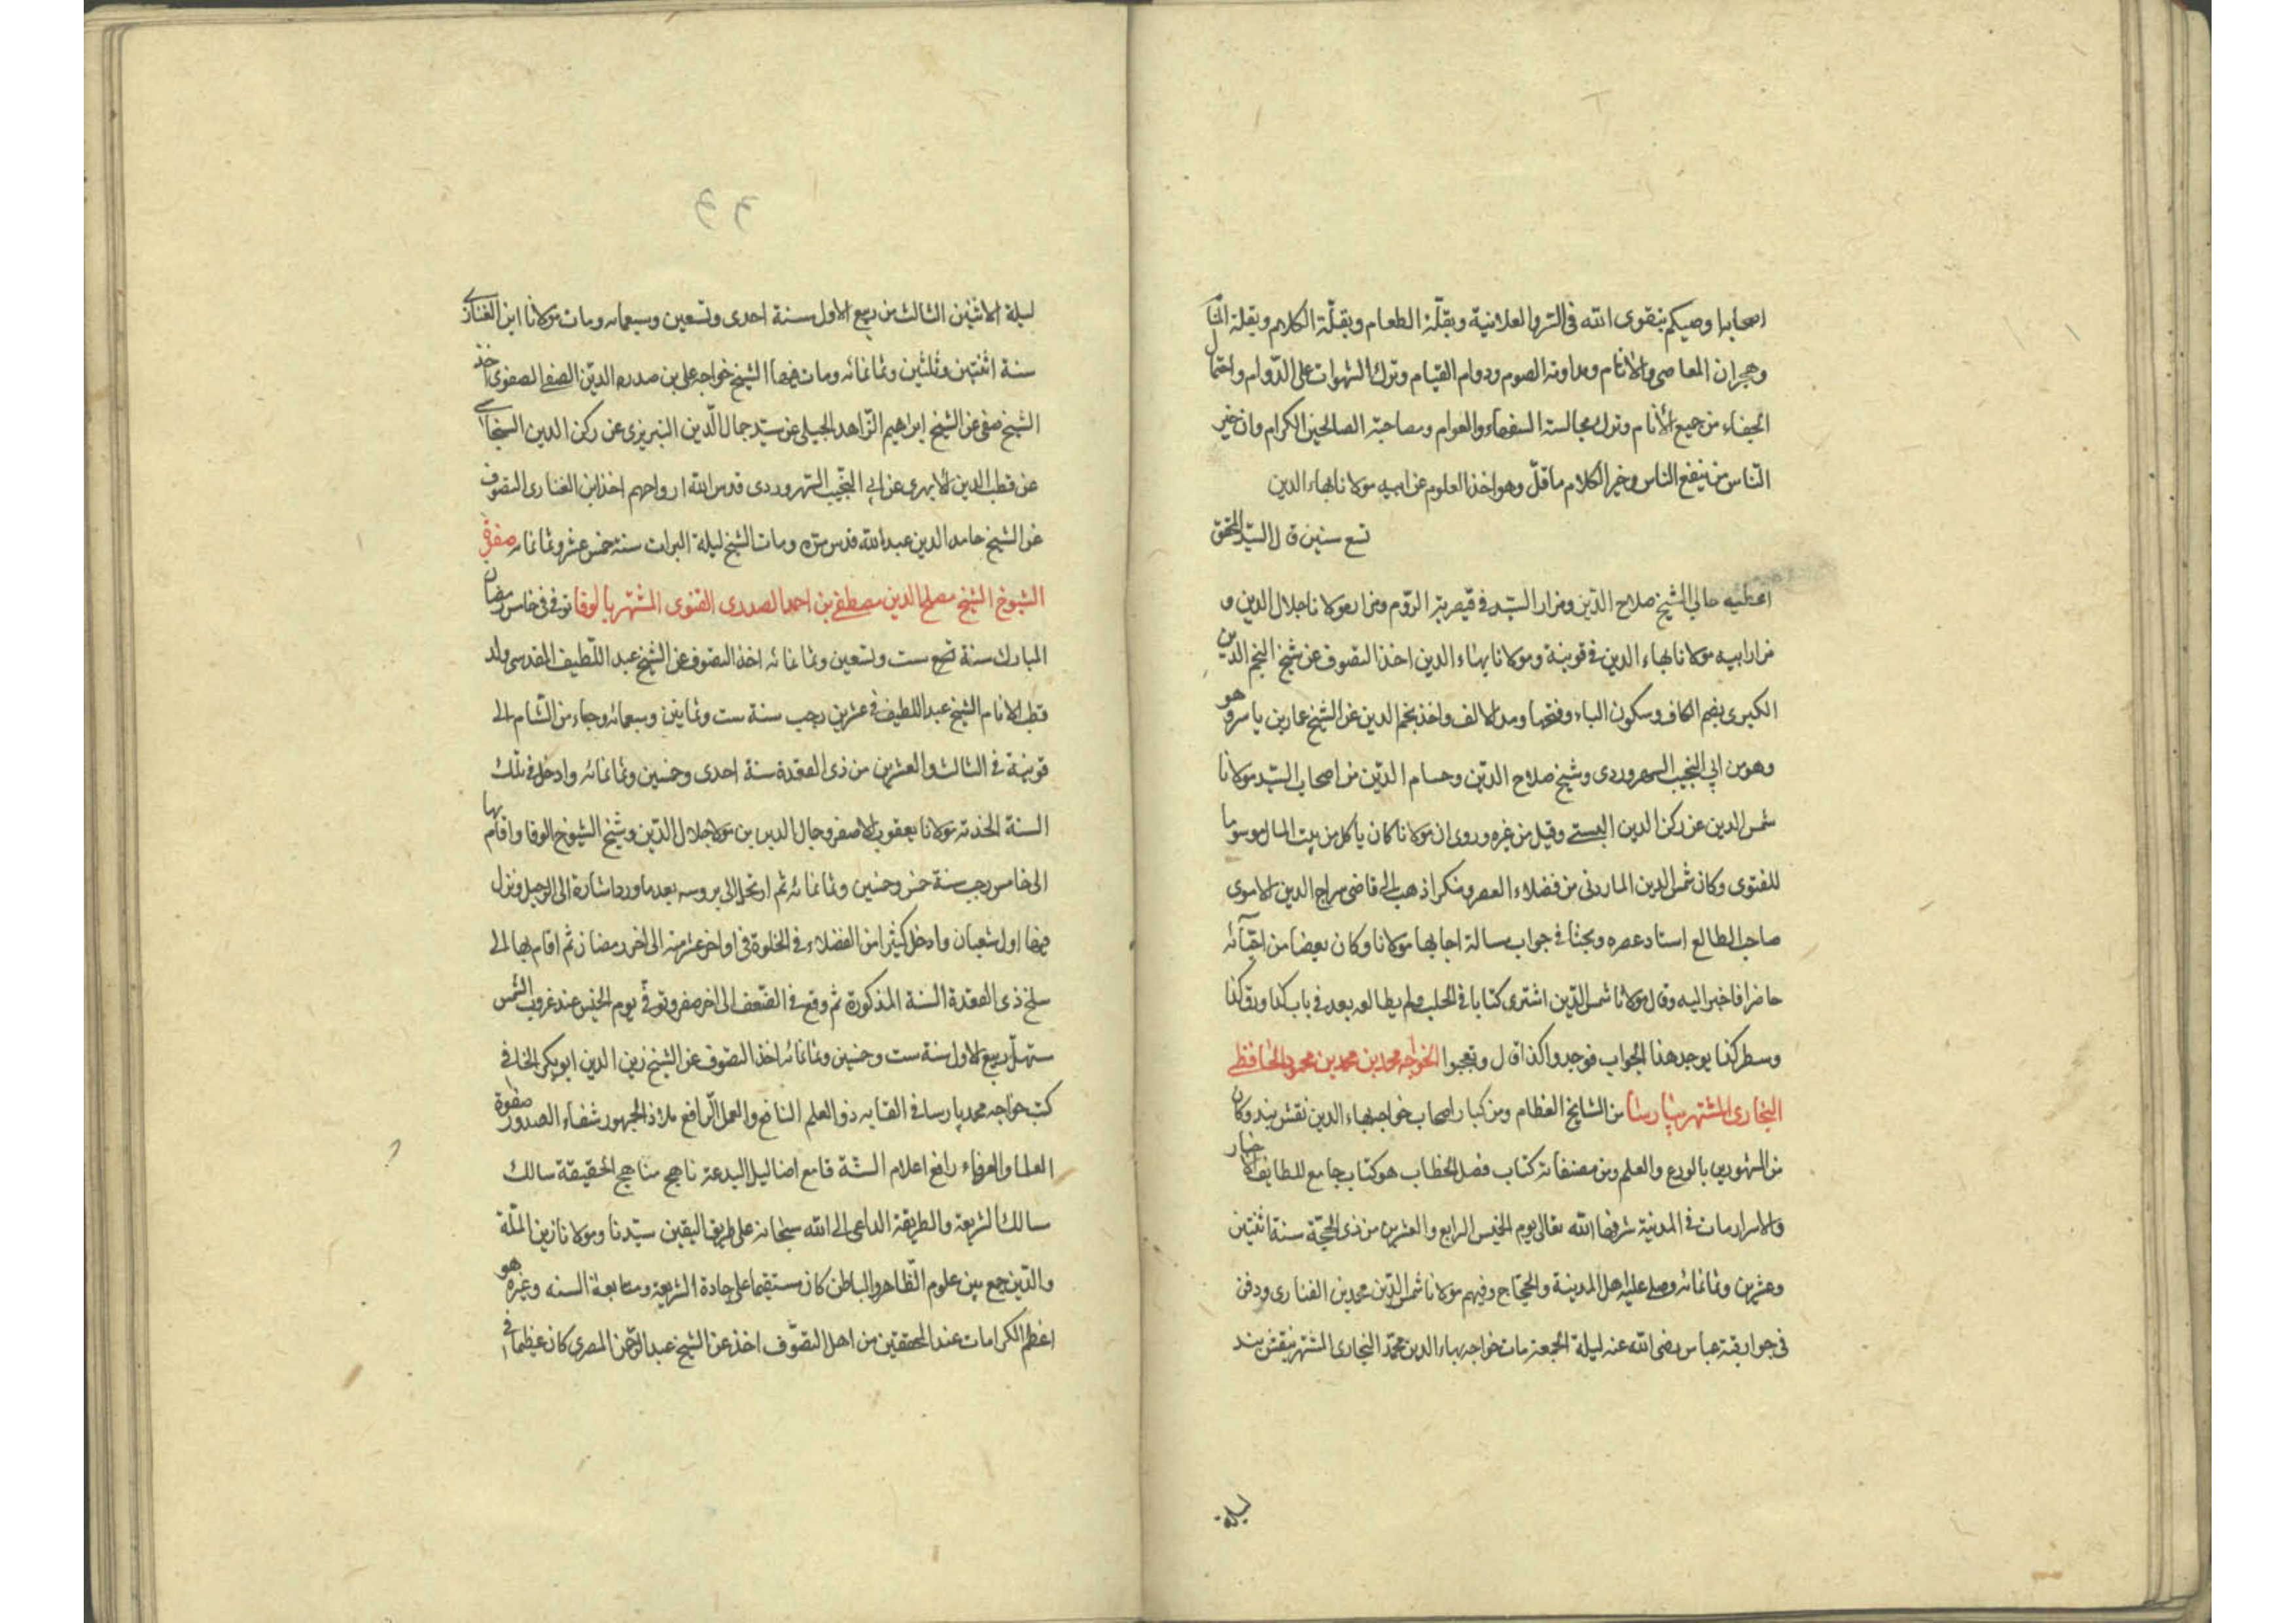 اصحابا وصيكم بتقوى الله فى السر والعلانية وبقلّة الطعام وبقلّة الكلام وبقلة المنام
وهجران المعاصى والاثام ومداومة الصوم ودوام القيام وترك الشهوات على الدّوام واحتمال
الجفاء من جميع الأنام وترك مجالسة السفهاء والعوام ومصاحبة الصالحين الكرام وان خير
الناس من ينفع الناس وخير الكلام ما قلّ وهو اخذ العلوم عن ابيه مولانا بهاء الدين
تسع سنين قال السيد المحقق
اعطيه حالي الشيخ صلاح الدّين ومزار السيّد فى قيصرية الرّوم ومزار مولانا جلال الدين و
مزار ابيه مولانا بهاء الدين فى قونية ومولانا بهاء الدين اخذ التصوف عن شيخ النجم الدين
الكبرى بضم الكاف وسكون الباء وفتحها ومد الالف واخذ نجم الدين عن الشيخ عمار بن ياسر وهو
وهو من ابى النجيب السهروردى وشيخ صلاح الدين وحسام الدّين من اصحاب السيّد مولانا
شمس الدين عن ركن الدين البستى وقيل من غيره وروى ان مولانا كان ياكل من بيت المال موسوما
للفتوى وكان شمس الدين الماردنى من فضلاء العصر ومنكرا ذهب الى قاضى سراج الدين الاموى
صاحب المطالع استاد عصره وبحثا فى جواب رسالة اجابها مولانا وكان بعضا من احبّائه
حاضرا فاخبر اليه وقال مولانا شمس الدّين اشترى كتابا فى الحلب ولم يطالعه بعد فى باب كذا ورق كذا
وسطر كذا يوجد هذا الجواب فوجدوا كذا قال وتعجبوا الخواجه محمد بن محمد بن محمود الحافظى
البخارى المشتهر بپارسا من المشايخ العظام ومن كبار اصحاب خواجه بهاء الدين نقش بند وكان
من المشهورين بالورع والعلم ومن مصنفاته كتاب فصل الخطاب هو كتاب جامع للطايف الاخبار
والاسرار مات فى المدينة شرفها الله تعالى يوم الخميس الرابع والعشرين من ذى الحجّة سنة اثنتين
وعشرين وثمانمائه وصلى عليه اهل المدينة والحجّاج وفيهم مولانا شمس الدّين محمد بن الفنارى ودفن
فى جوار قبة عباس رضى الله عنه ليلة الجمعة مات خواجه بهاء الدين محمّد البخارى المشتهر بنقش بند
ليلة
ليلة الاثنين الثالث من ربيع الاول سنة احدى وتسعين وسبعمائه ومات مولانا ابن الفنارى
سنة اثنتين وثلثين وثمانمائه ومات فيها الشيخ خواجه على بن صدر الدين الصفى الصفوى اخذ
الشيخ صفى عن الشيخ ابراهيم الزّاهد الجيلى عن سيّد جمال الدّين التبريزى عن ركن الدين السنجاسى
عن قطب الدين الابهرى عن ابى النجيب السهروردى قدس الله ارواحهم اخذ ابن الفنارى التصوف
عن الشيخ حامد الدين عبد الله قدس سره ومات الشيخ ليلة البرات سنة خمس عشر وثمانمائه
الشيوخ الشيخ مصلح الدين مصطفى بن احمد الصدرى القنوى المشتهر بالوفا توفى فى خامس رمضان
المبارك سنة تسع ست وتسعين وثمانمائه اخذ التصوف عن الشيخ عبد اللّطيف القدسى ولد
قطب الانام الشيخ عبد اللطيف فى عشرين رجب سنة ست وثمانين وسبعمائه وجاء من الشام الى
قونية فى الثالث والعشرين من ذى القعدة سنة احدى وخمسين وثمانمائه وادخل فى تلك
السنة الخدمة مولانا يعقوب الاصفر وجال الدين بن مولا جلال الدّين وشيخ الشيوخ الوفا واقام بها
الى خامس رجب سنة خمس وخمسين وثمانمائه ثم ارتحل الى بروسه بعد ما ورد اشارة الى الرحيل ونزل
فيها اول شعبان وادخل كثيرا من الفضلاء فى الخلوة فى اواخر عشر منه الى اخر رمضان ثم اقام بها الى
سلخ ذى القعدة السنة المذكورة ثم وقع فى الضّعف الى اخر صفر وتوفّى يوم الخميس عند غروب الشمس
مستهلّ ربيع الاول سنة ست وخمسين وثمانمائه اخذ التصوف عن الشيخ زين الدين ابو بكر الخافى
كتب خواجه محمد پارسا فى القابه ذو العلم النافع والعمل الرّافع ملاذ الجمهور شفاء الصدور صفوة
العلما والعرفاء رافع اعلام السّنّة قامع اضاليل البدعة ناهج مناهج الحقيقة سالك
سالك الشريعة والطريقة الداعى الى الله سبحانه على طريق اليقين سيّدنا ومولانا زين الملّة
والدّين جمع بين علوم الظّاهر والباطن كان مستقيما على جادة الشريعة ومتابعة السنه وغيره هو
اعظم الكرامات عند المحققين من اهل التصوّف اخذ عن الشيخ عبد الرّحمن المصرى كان عظيما فى